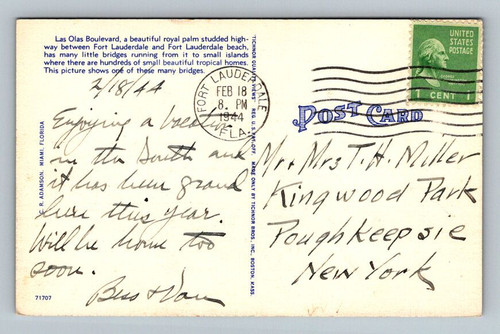 Las Olas Boulevard, a beautiful royal palm studded high-
way between Fort Lauderdale and Fort Lauderdale beach,
has many little bridges running from it to small islands
where there are hundreds of small beautiful tropical homes.
This picture shows one of these many bridges.
2/18/44
Enjoying a
in the South and
it has been grand
here this year.
Will be home too
soon.
Bess +
71707
C. R. ADAMSON, MIAMI, FLORIDA
TICHNOR QUALITY VIEWS REG. U.S. PAT. OFF. MADE ONLY BY TICHNOR BROS., INC., BOSTON, MASS.
FORT LAUDERDALE
FEB 18
8. PM
1944
FLA.
UNITED STATES
POSTAGE
1 CENT 1
POST CARD
Mr + Mrs T. H. Miller
Kingwood Park
Poughkeepsie
New York